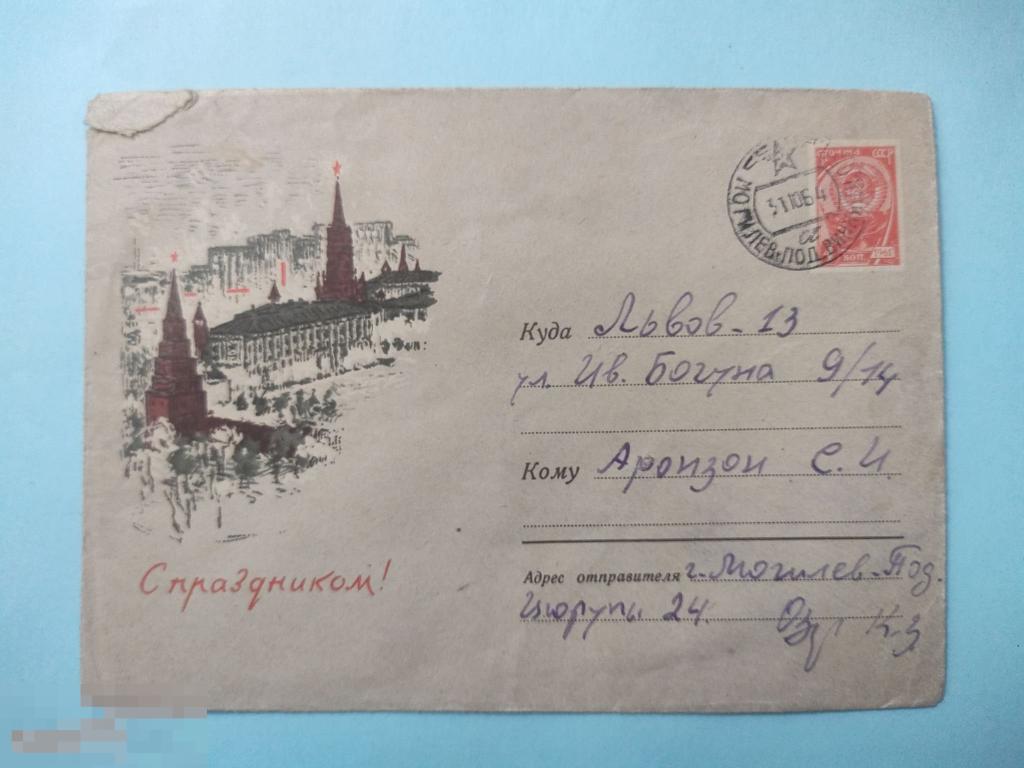 ПОЧТА СССР
31 10 64
МОГИЛЕВ-ПОД
КОП. 1961
Куда Львов-13
ул. Ив. Богуна 9/14
Кому Аронзон С. И.
С праздником!
Адрес отправителя г. Могилев-Под.
Цюрупы 24.